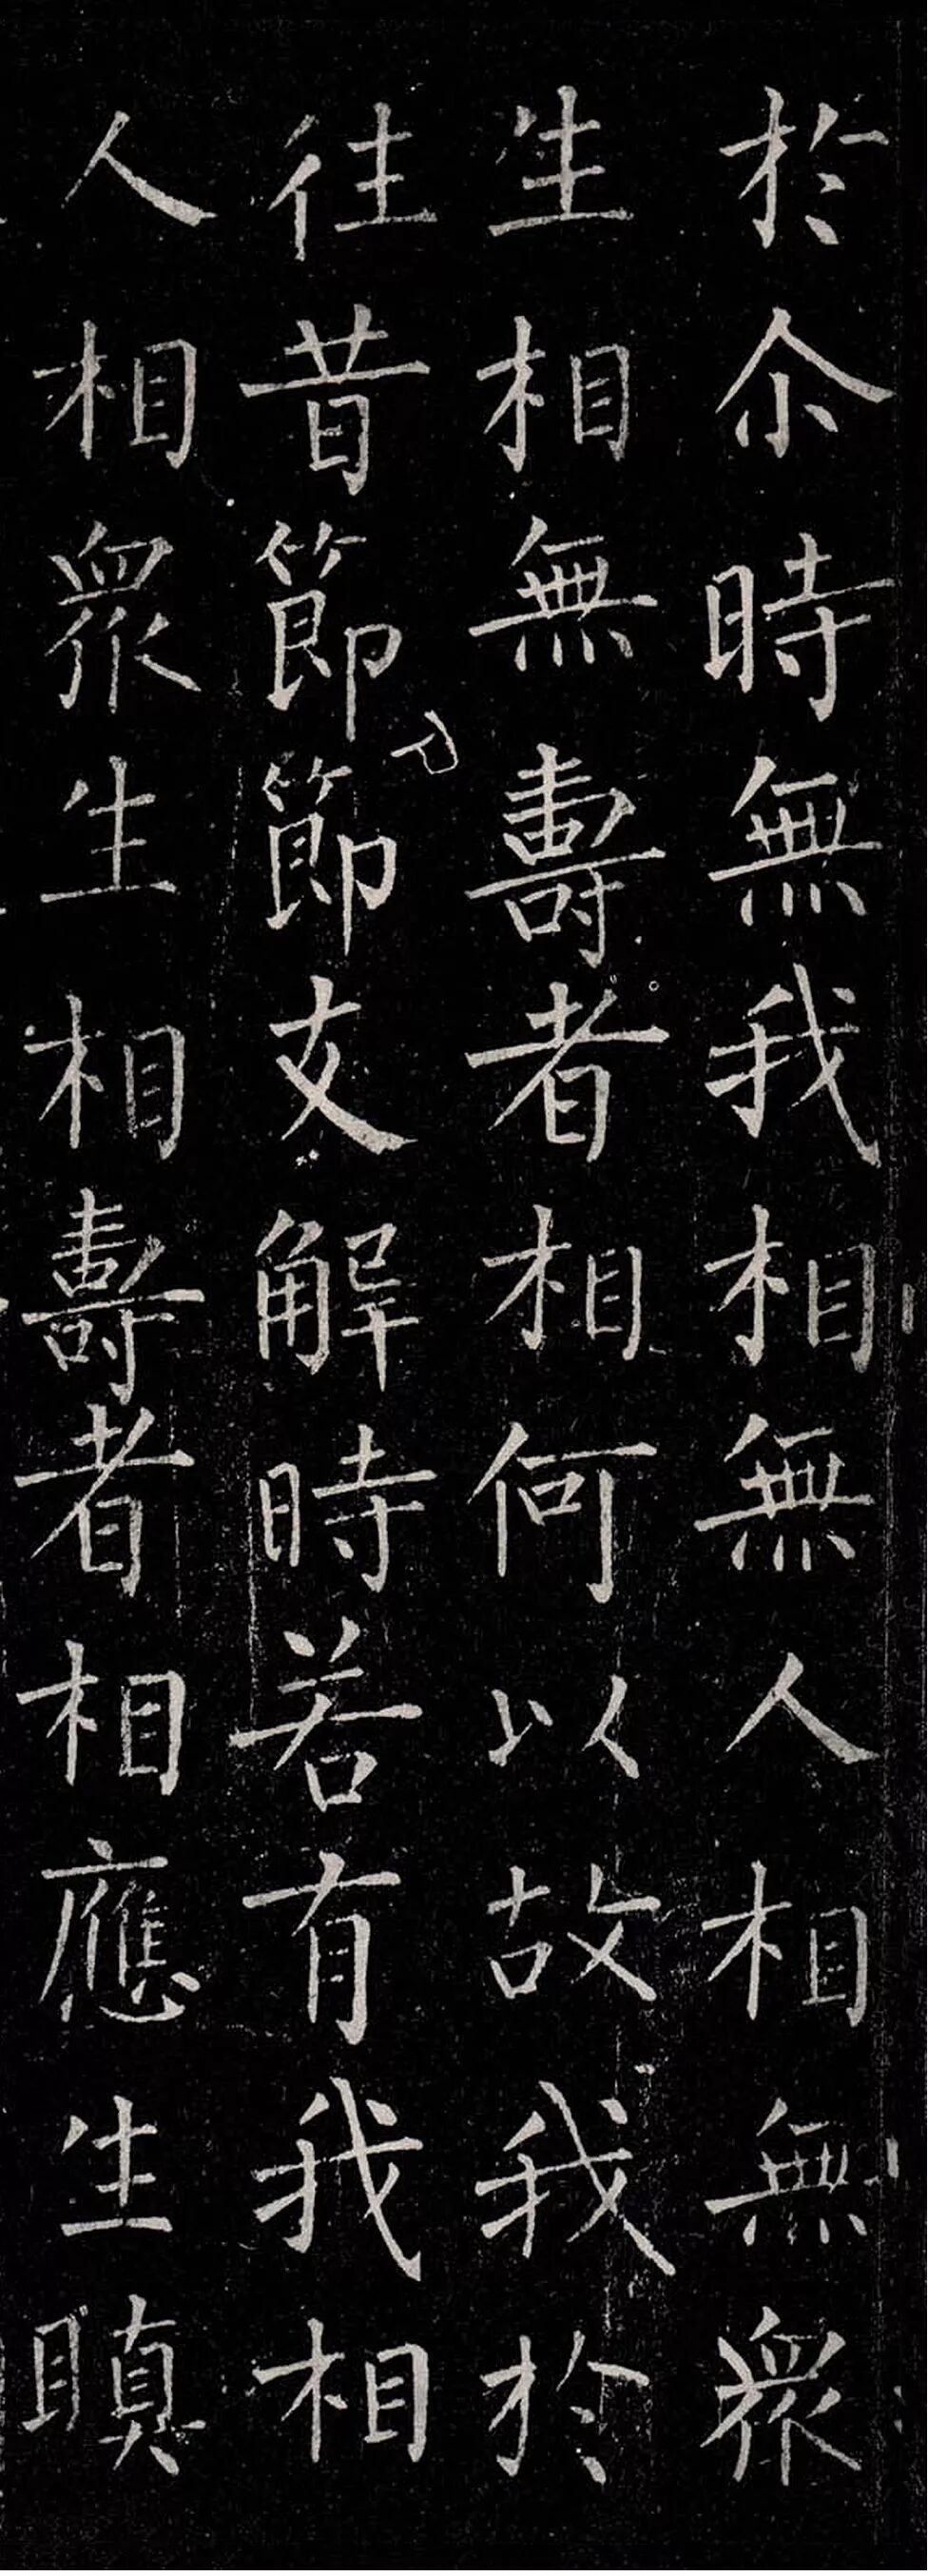 於尒時無我相無人相無衆
生相無壽者相何以故我於
往昔節節支解時若有我相
人相衆生相壽者相應生瞋